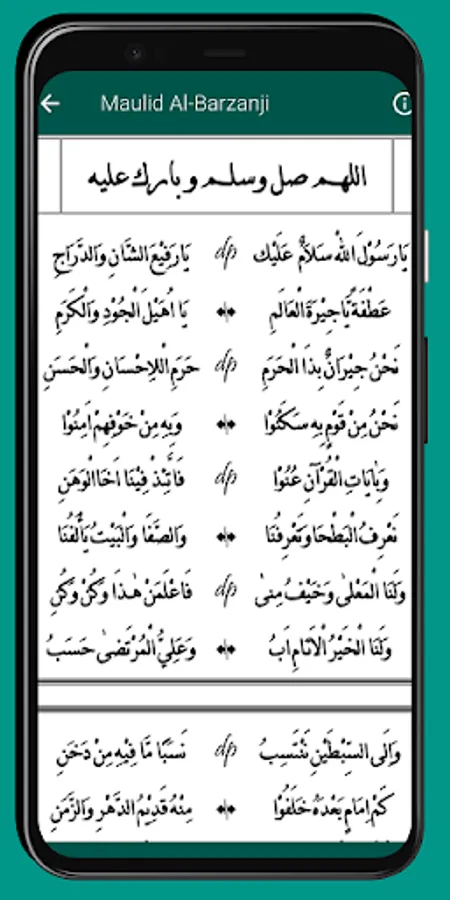 Maulid Al-Barzanji
اللهم صل وسلم وبارك عليه
يَارَسُوْلَ اللهْ سَلَامٌ عَلَيْك يَارَفِيْعَ الشَّانِ وَالدَّرَاجِ
عَطْفَةً يَّاجِيْرَةَ الْعَالَمِ يَا اُهَيْلَ الْجُوْدِ وَالْكَرَمِ
نَحْنُ جِيْرَانٌ بِذَا الْحَرَمِ حَرَمِ اْلاِحْسَانِ وَالْحَسَنِ
نَحْنُ مِنْ قَوْمٍ بِهِ سَكَنُوْا وَبِهِ مِنْ خَوْفِهِمْ اَمِنُوْا
وَبِاٰيَاتِ الْقُرْآنِ عُنُوْا فَاتَّئِدْ فِيْنَا اَخَا الْوَهَنِ
نَعْرِفُ الْبَطْحَا وَتَعْرِفُنَا وَالصَّفَا وَالْبَيْتُ يَأْلَفُنَا
وَلَنَا الْمَعْلٰى وَخَيْفُ مِنٰى فَاعْلَمَنْ هٰذَا وَكُنْ وَكُنِ
وَلَنَا الْخَيْرُ اْلاَنَامِ اَبُ وَعَلِيُّ الْمُرْتَضٰى حَسَبُ
وَاِلَى السِّبْطَيْنِ نَنْتَسِبُ نَسَبًا مَّا فِيْهِ مِنْ دَخَنِ
كَمْ اِمَامٍ بَعْدَهُ خَلَفُوْا مِنْهُ قَدِيْمُ الدَّهْرِ وَالزَّمَنِ